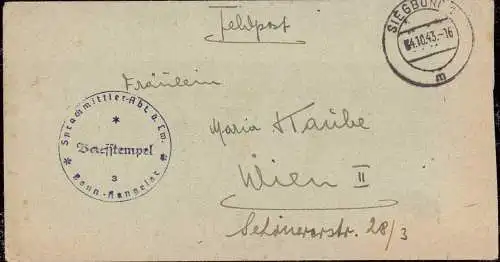 Feldpost
SIEGBURG
4.10.43.-16
m
Fräulein
Maria Haube
Wien II
Schönererstr. 28/3
Sprachmittler-Abt. d. Lw.
Briefstempel
3
Bonn-Hangelar